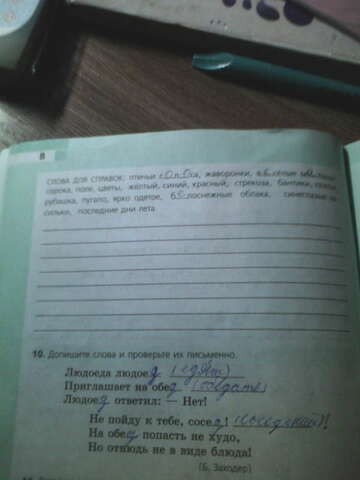 8
СЛОВА ДЛЯ СПРАВОК: птичьи голоса, жаворонки, весёлые
сорока, поле, цветы, жёлтый, синий, красный, стрекоза, бантики,
рубашка, пугало, ярко одетое, белоснежные облака, синеглазые
последние дни лета.
10. Допишите слова и проверьте их письменно.
Людоеда людоед (едят)
Приглашает на обед (обедать)
Людоед ответил: – Нет!
Не пойду к тебе, сосед! (соседний)!
На обед попасть не худо,
Но отнюдь не в виде блюда!
(Б. Заходер)